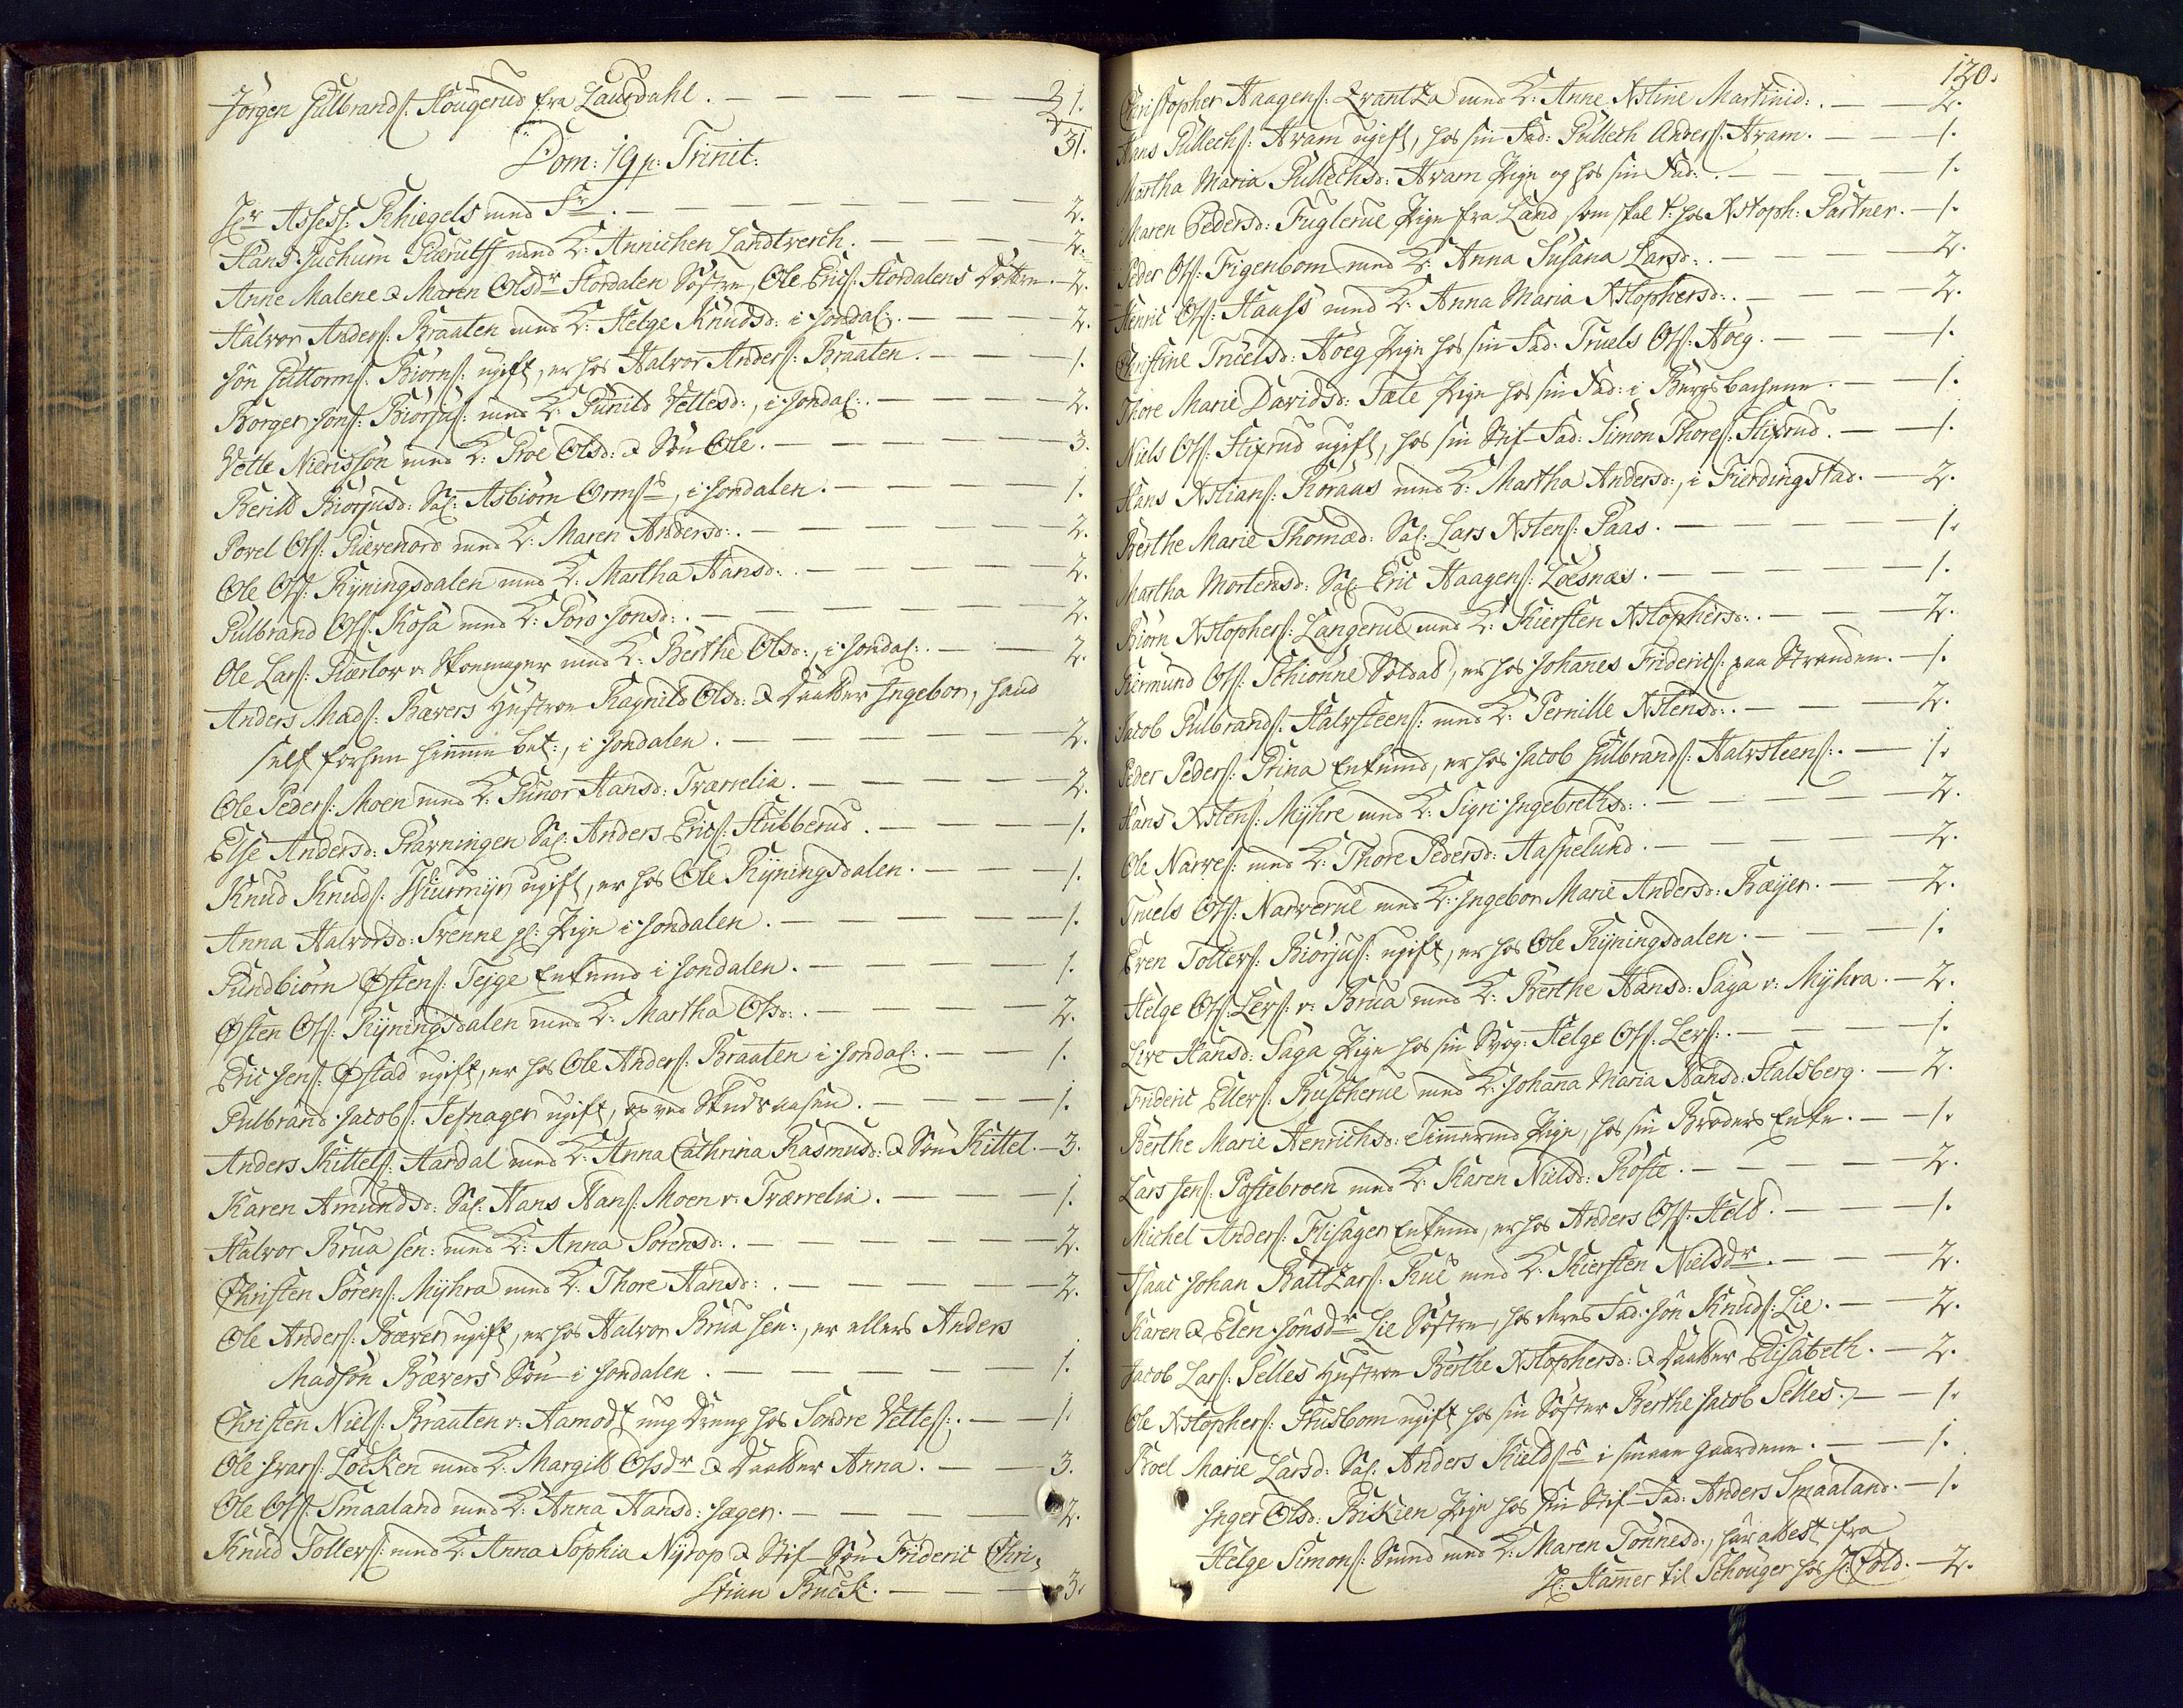 Jörgen Gulbrands: Hougerud fra Laurdahl. — 1.
31.
Dom: 19 p: Trinit:
Hr Assess: Schiegels med Fr — 2.
Hans Juchum med K: Annichen Landtverch. — 2.
Anne Malene & Maren Olsdr Stordalen Söstre, Ole Erics: Stordalens Döttre. — 2.
Halvor Anders: Braaten med K: Helge Knudsd: i Jondal: — 2.
Jon Guttorms: Biörns: ugift, er hos Halvor Anders: Braaten. — 1.
Borger Jons: Biörjus: med K: Gunild Vettesd:, i Jondal: — 2.
Vetle Nierisson med K: Groe Olsd: & Sön Ole. — 3.
Berild Biorjusd: Sal: Asbiörn Orms:, i Jondalen. — 1.
Povel Ols: Giævenord med K: Maren Andersd: — 2.
Ole Ols: Ryningsdalen med K: Martha Hansd: — 2.
Gulbrand Ols: Kosa med K: Goro Jonsd: — 2.
Ole Lars: Giærlov v: Skoemager med K: Berthe Olsd:, i Jondal: — 2.
Anders Mads: Bævers Hustroe Ragnild Olsd: & Daatter Ingebor, hand
self forhen himme bet:, i Jondalen. — 2.
Ole Peders: Moen med K: Gunor Hansd: Tværrelia. — 2.
Else Andersd: Grævningen Sal: Anders Erics: Stubberud. — 1.
Knud Knuds: ugift, er hos Ole Ryningsdalen. — 1.
Anna Halvorsd: Svenne gl: Pige i Jondalen. — 1.
Gundbiörn Østens: Tejge Enkemd i Jondalen. — 1.
Østen Ols: Ryningsdalen med K: Martha Olsd: — 2.
Eric Jens: Østad ugift, er hos Ole Anders: Braaten i Jondal: — 1.
Gulbrand Jacobs: Jesnager ugift, ved Skudsaasen. — 1.
Anders Kittels: Aardal med K: Anna Cathrina Rasmusd: & Sön Kittel. — 3.
Karen Amundsd: Sal: Hans Hans: Moen v: Tværrelia. — 1.
Halvor Brua sen: med K: Anna Sörensd: — 2.
Christen Sörens: Myhra med K: Thore Hansd: — 2.
Ole Anders: Bæver ugift, er hos Halvor Brua sen:, er ellers Anders
Madsön Bævers Sön i Jondalen. — 1.
Christen Niels: Braaten v: Aamodt ung Dreng hos Sondre Vettes: — 1.
Ole Ivars: Löcken med K: Margill Olsdr & Daatter Anna. — 3.
Ole Ols: Smaaland med K: Anna Hansd: Jæger. — 2.
Knud Tollers: med K: Anna Sophia Nyrop & Stif-Sön Frideric Chri-
stian Buck. — 3.
120.
Christopher Haagens: Qvantza med K: Anne Xstine Martinid: — 2.
Hans Gullechs: Hvam ugift, hos sin Fad: Gullech Anders: Hvam. — 1.
Martha Maria Gullechsd: Hvam Pige og hos sin Fad: — 1.
Maren Pedersd: Fuglerue Pige fra Land som skal t: hos Xstoph: Gartner. — 1.
Peder Ols: Figenbom med K: Anna Susana Larsd: — 2.
Henric Ols: Hauss med K: Anna Maria Xstophersd: — 2.
Christine Truelsd: Höeg Pige hos sin Fad: Truels Ols: Höeg. — 1.
Thore Marie Davidsd: Fæte Pige hos sin Fad: i Bergsbachene. — 1.
Niels Ols: Stixrud ugift, hos sin Stif-Fad: Simon Thores: Stixrud. — 1.
Hans Xstians: Koraas med K: Martha Andersd:, i Fierdingstad. — 2.
Berthe Marie Thomæd: Sal: Lars Xstens: Gaas. — 1.
Martha Mortensd: Sal: Eric Haagens: Loesnæs. — 1.
Biörn Xstophers: Langerue med K: Kiersten Xstophersd: — 2.
Giermund Ols: Schionne Soldad, er hos Johanes Friderics: paa Stranden. — 1.
Jacob Gulbrands: Halvsteens: med K: Pernille Xstensd: — 2.
Peder Peders: Stina Enkemd, er hos Jacob Gulbrands: Halvsteens: — 1.
Hans Xstens: Myhre med K: Sigri Ingebrethsd: — 2.
Ole Narves: med K: Thore Pedersd: Haspelund. — 2.
Truels Ols: Narverue med K: Ingebor Marie Andersd: Bæyer. — 2.
Even Tollers: Biörjus: ugift, er hos Ole Ryningsdalen. — 1.
Helge Ols: Levs: v: Brua med K: Berthe Hansd: Saga v: Myhra. — 2.
Live Hansd: Saga Pige hos sin Svog: Helge Ols: Levs: — 1.
Frideric Ellers: Buscherue med K: Johanna Maria Hansd: Stalsberg. — 2.
Berthe Marie Henrichsd: Timermd Pige, hos sin Broders Enke. — 1.
Lars Jens: Postebroen med K: Karen Nielsd: Röste. — 2.
Michel Anders: Flisager Enkemd, er hos Anders Ols: Held. — 1.
Isaac Johan Baltzars: Rue med K: Kiersten Nielsdr. — 2.
Karen & Elen Jonsdr Lie Söstre hos deres Fad: Jon Knuds: Lie. — 2.
Jacob Lars: Selles Hustroe Berthe Xstophersd: & Daatter Elisabeth. — 2.
Ole Xstophers: Huusbom ugift hos sin Söster Berthe Jacob Selles. — 1.
Koel Marie Larsd: Sal: Anders Kields: i smaae Gaardene. — 1.
Inger Olsd: Birkien Pige hos sin Stif-Fad: Anders Smaaland. — 1.
Helge Simons: Sund med K: Maren Tönnesd:, har attest fra
Hr: Hamer til Schouger hos Hr: Cold. — 2.